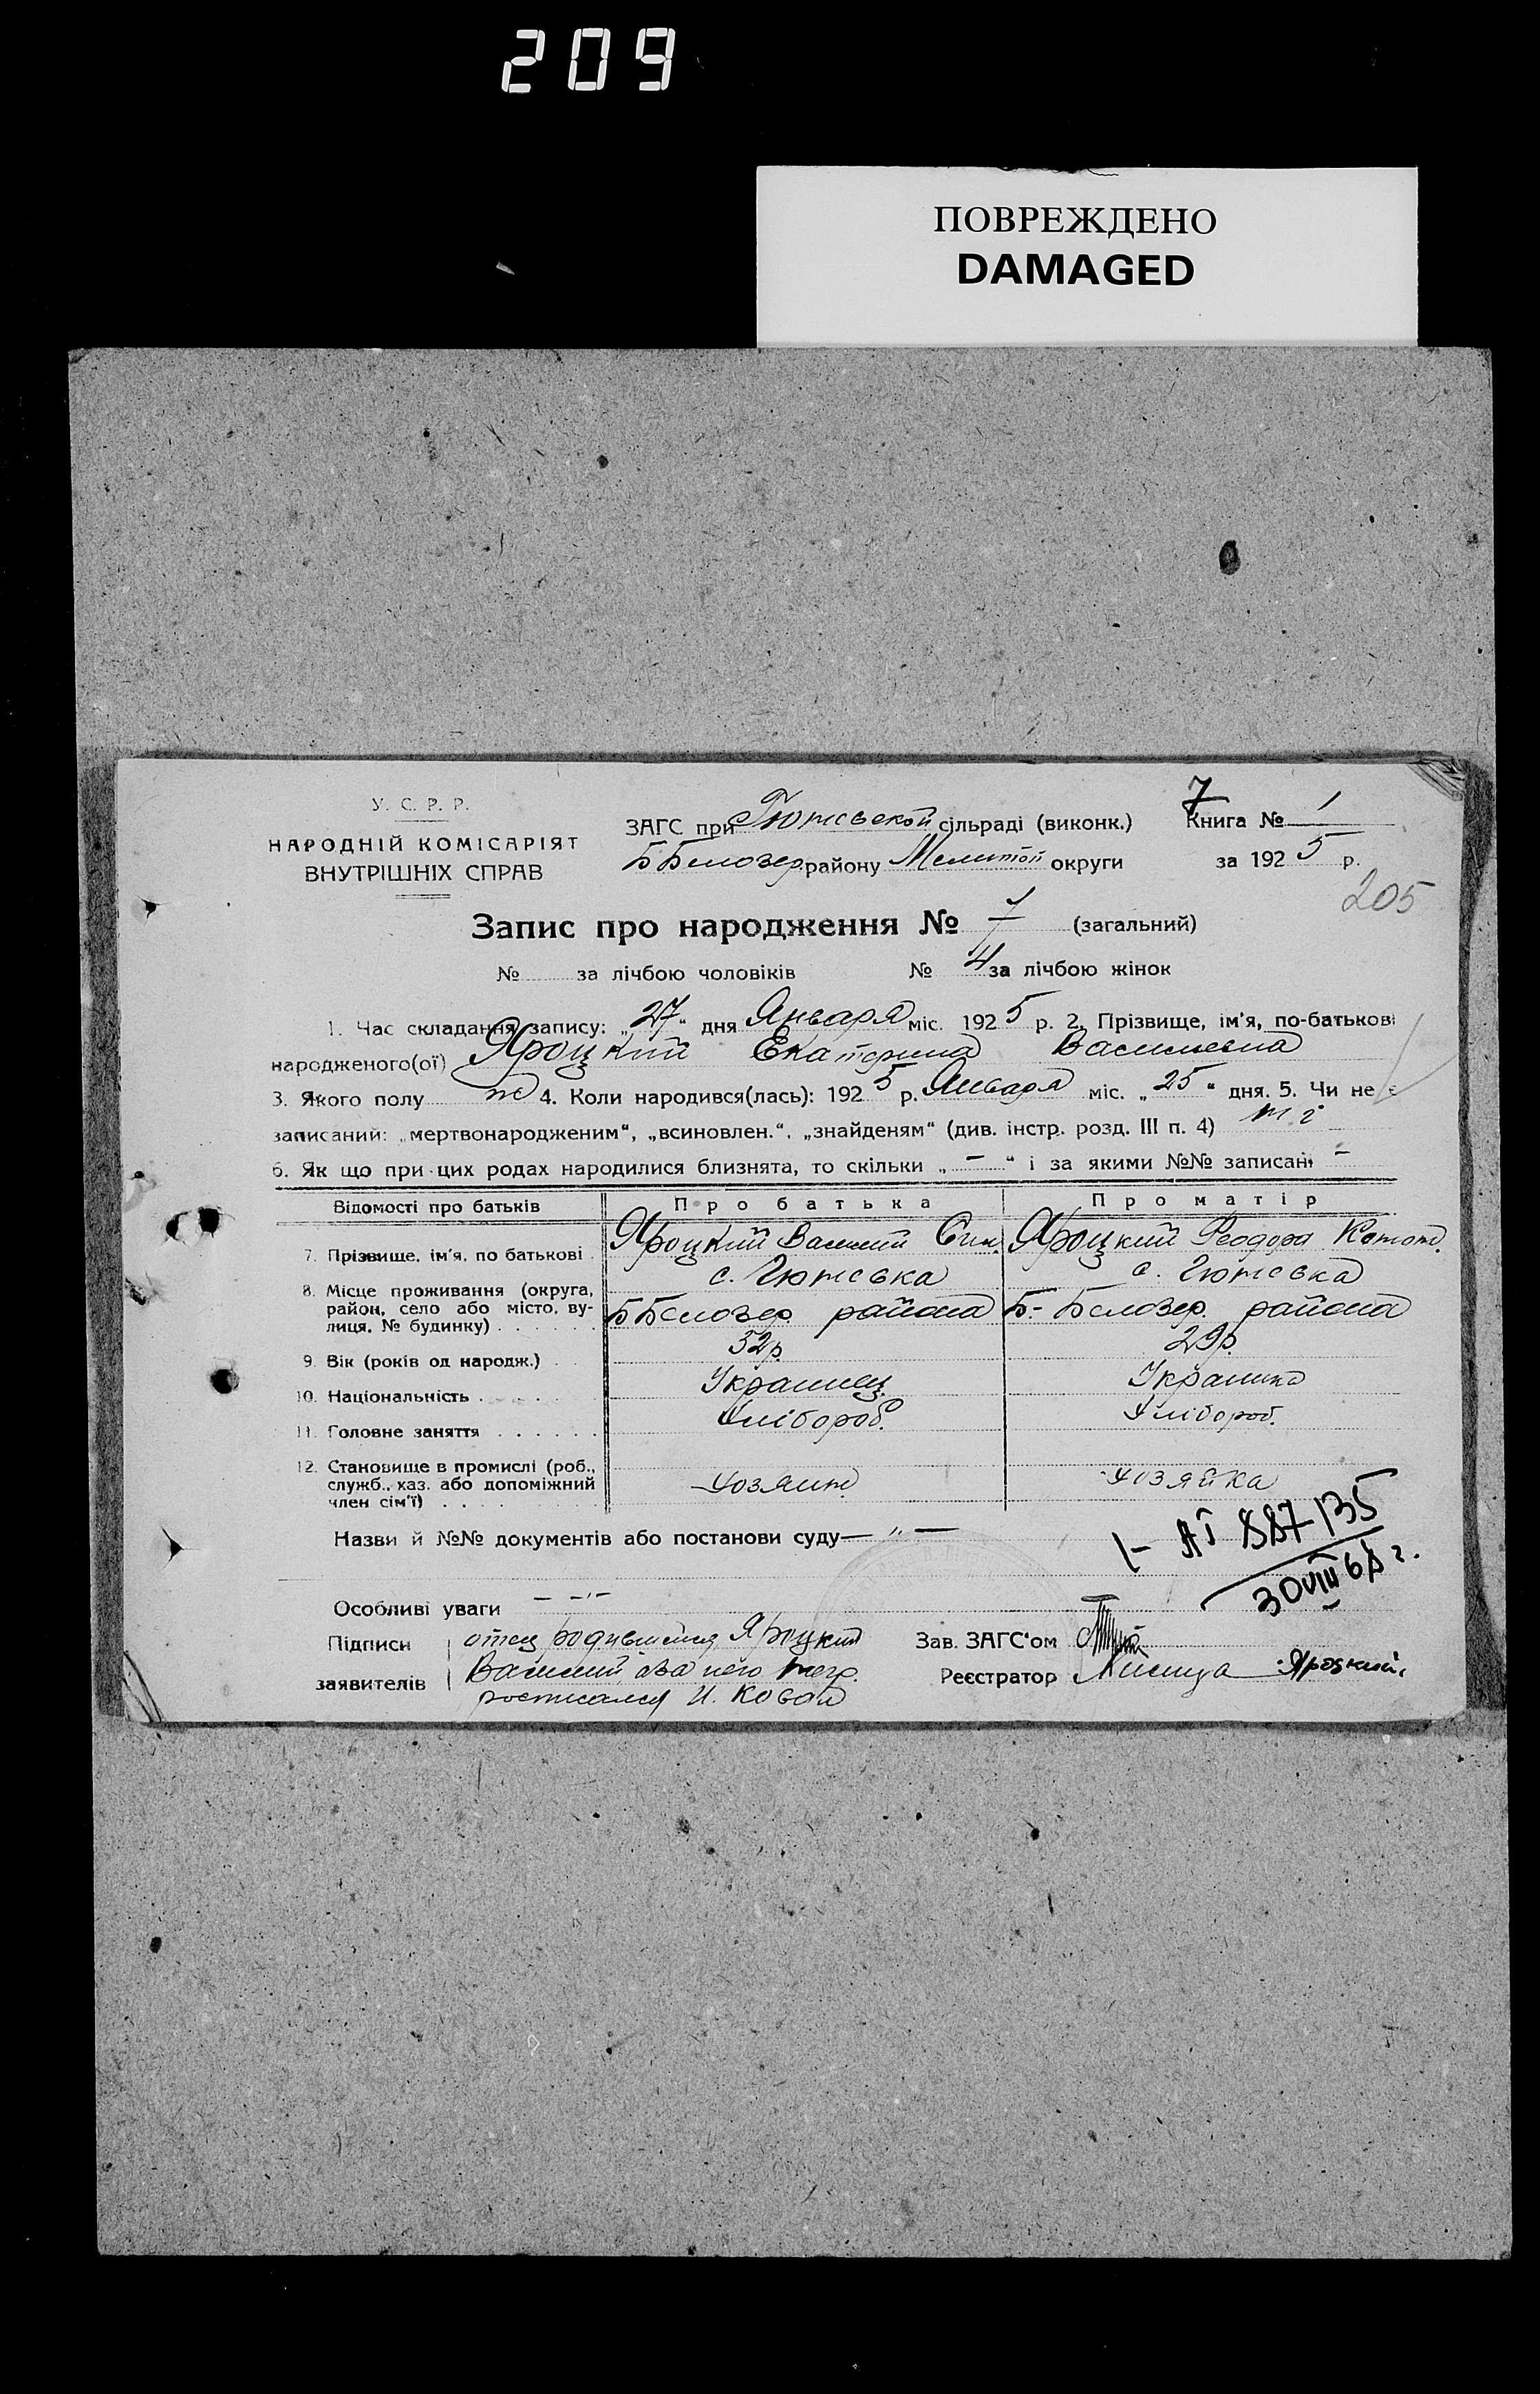 209
ПОВРЕЖДЕНО
DAMAGED
У. С. Р. Р.
НАРОДНІЙ КОМІСАРІЯТ
ВНУТРІШНІХ СПРАВ
7
ЗАГС при Гютовской сільраді (виконк.) Книга № 1
Б Белозер. району Мелитоп округи за 1925 р.
205
Запис про народження № 7 (загальний)
№ за лічбою чоловіків № 4 за лічбою жінок
1. Час складання запису: „27“ дня Января міс. 1925 р. 2. Прізвище, ім'я, по-батькові
народженого(ої) Яроцкий Екатерина Васильевна
3. Якого полу ж 4. Коли народився(лась): 1925 р. Января міс. „25“ дня. 5. Чи не є
записаний: „мертвонародженим“, „всиновлен.“, „знайденям“ (див. інстр. розд. III п. 4)
6. Як що при цих родах народилися близнята, то скільки „-“ і за якими №№ записані -
Відомості про батьків Про батька Про матір
7. Прізвище, ім'я, по батькові Яроцкий Василий Яроцкий Феодора
с. Гютовка с. Гютовка
8. Місце проживання (округа, район, село або місто, вулиця, № будинку) Б Белозер района Б.- Белозер района
9. Вік (років од народж.) 32р. 29р.
10. Національність Украинец Украинка
11. Головне заняття Хлібороб. Хлібороб.
12. Становище в промислі (роб., служб., хаз. або допоміжний член сім'ї) хозяин хозяйка
Назви й №№ документів або постанови суду — „ —
1- АТ 887135
30 VIII 68 г.
Особливі уваги — -„-
Підписи заявителів отец родившейся Яроцкий
Василий, а за него негр.
росписался И. Коваль
Зав. ЗАГС'ом
Реєстратор Лисица Яроцкий